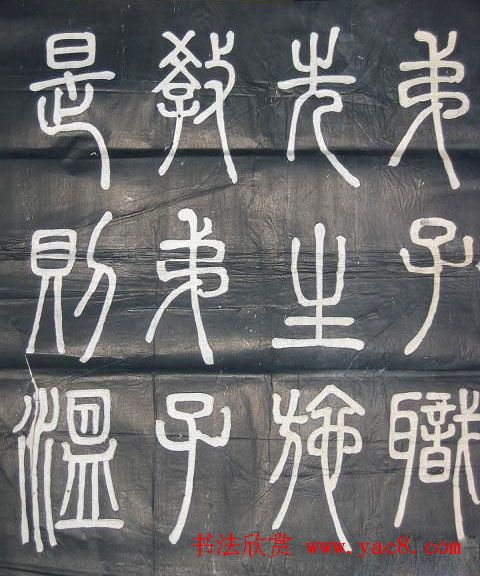 弟子職
先生施
教弟子
是則溫
书法欣赏 www.yac8.com